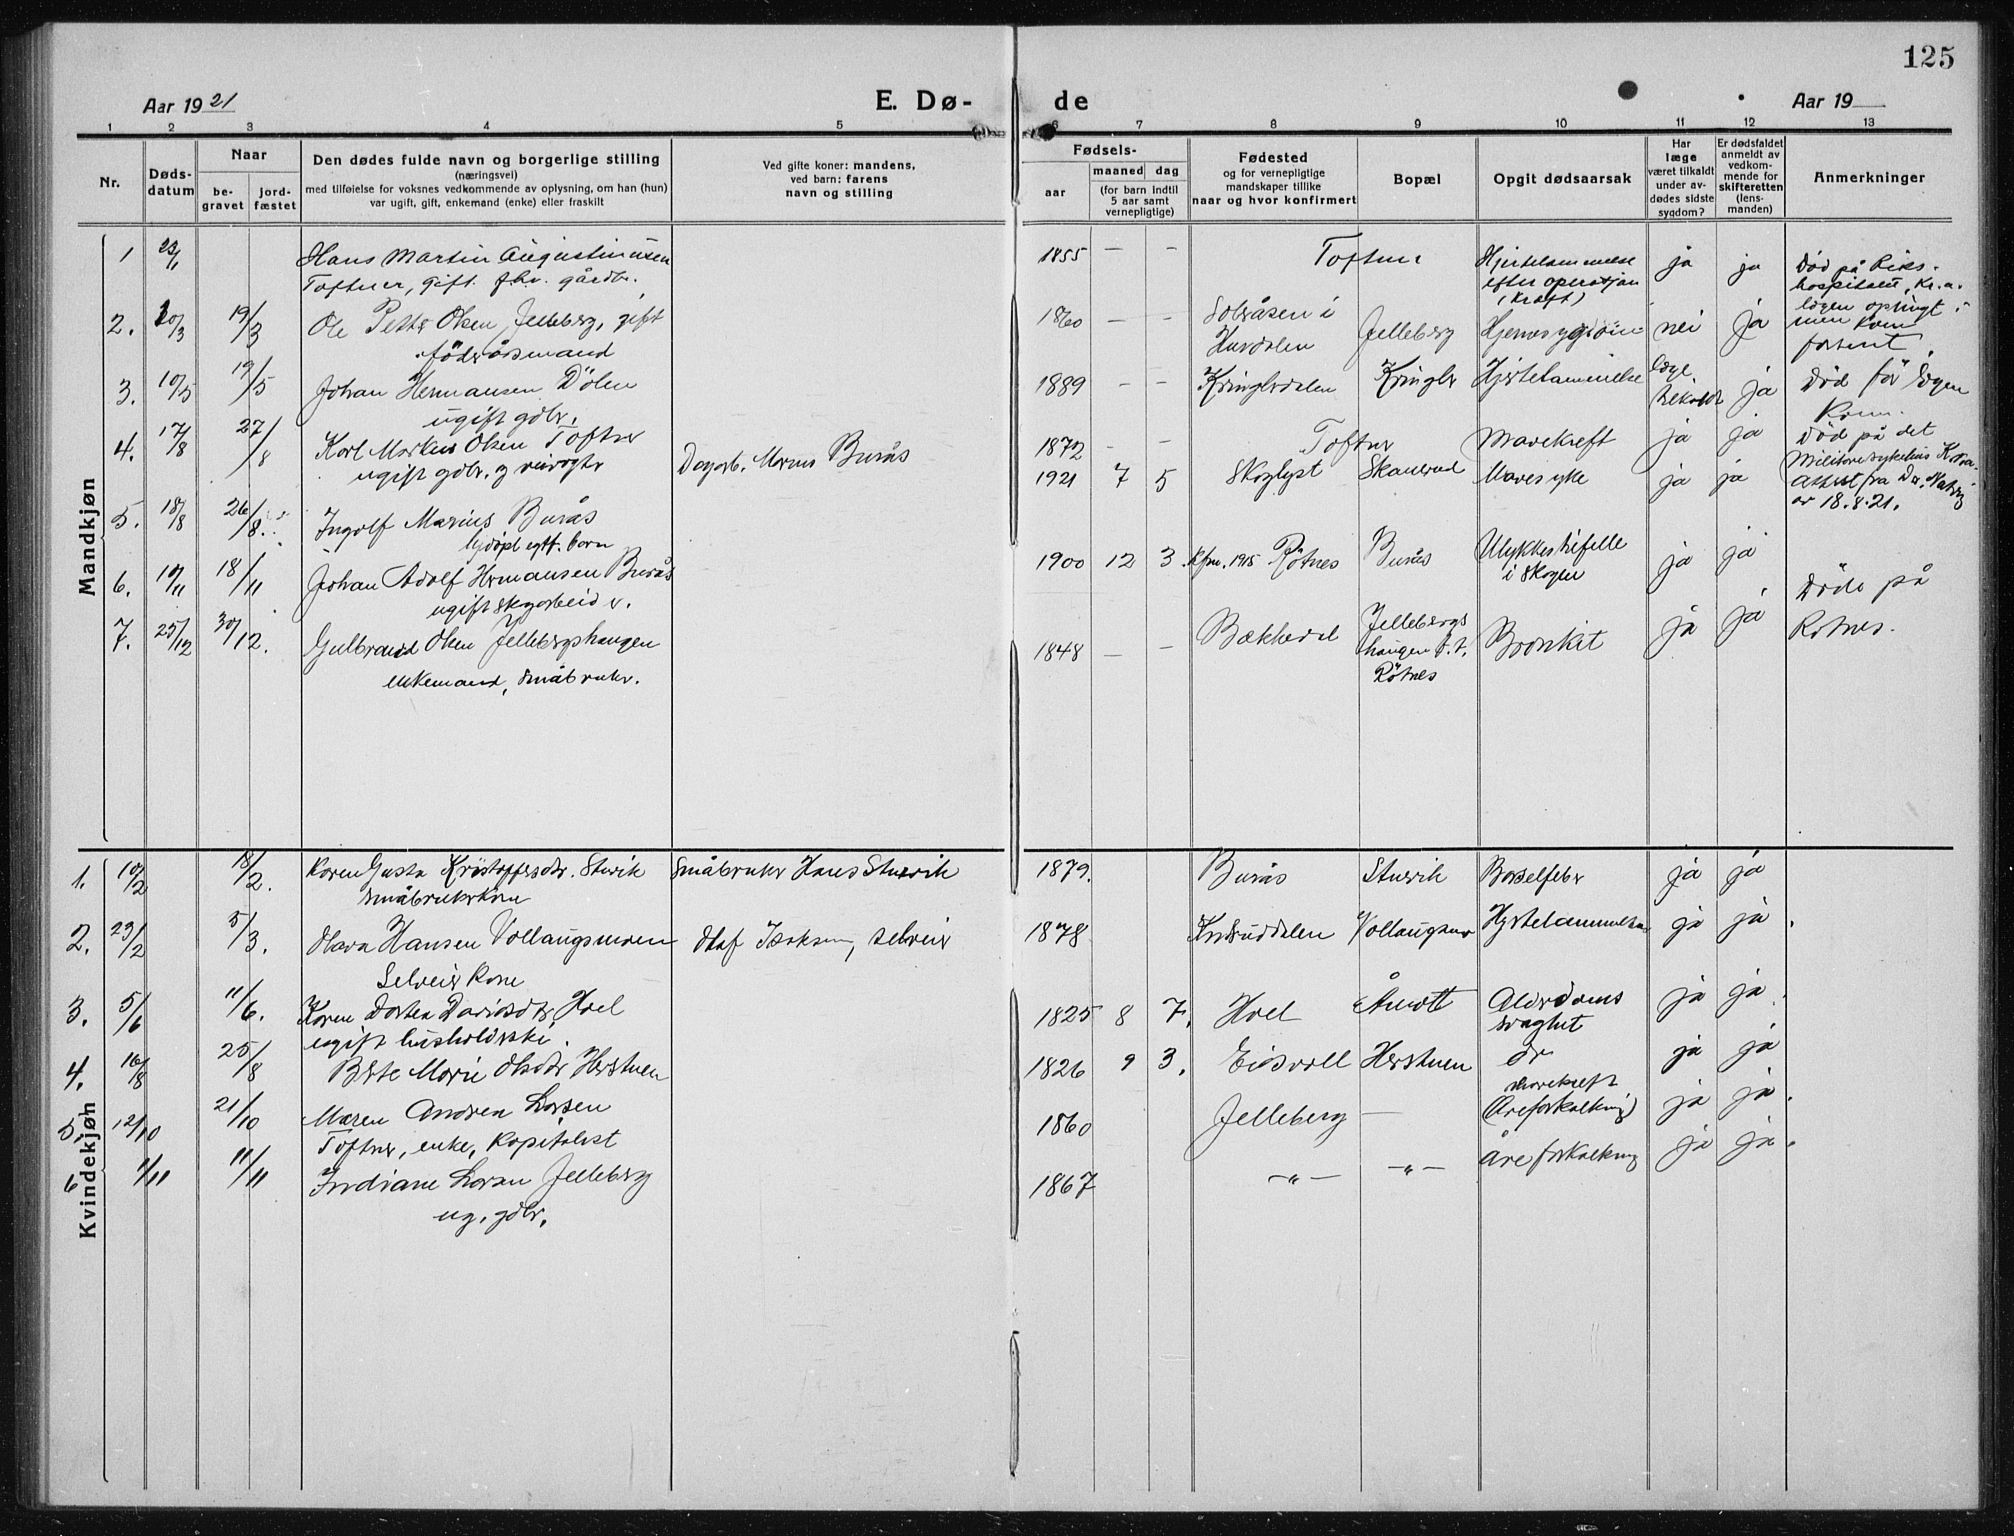 125
Aar 1921
E. Dø-
de
Aar 19
1 2 3 4 5 6 7 8 9 10 11 12 13
Nr.
Døds-
datum
Naar
be-
gravet
jord-
fæstet
Den dødes fulde navn og borgerlige stilling
(næringsvei)
med tilføielse for voksnes vedkommende av oplysning, om han (hun)
var ugift, gift, enkemand (enke) eller fraskilt
Ved gifte koner: mandens,
ved barn: farens
navn og stilling
Fødsels-
aar
maaned dag
(for barn indtil
5 aar samt
vernepligtige)
Fødested
og for vernepligtige
mandskaper tillike
naar og hvor konfirmert
Bopæl
Opgit dødsaarsak
Har
læge
været tilkaldt
under av-
dødes sidste
sygdom?
Er dødsfaldet
anmeldt av
vedkom-
mende for
skifteretten
(lens-
manden)
Anmerkninger
Mandkjøn
1 23/1 Hans Martin Augustinusen
Toftner, gift. fhv. gårdbr.
1855 — — Toftner
Hjertelammelse
efter operasjon
(kræft)
ja ja
Død på Riks-
hospitalet, Kr.a.
2. 10/3 19/3 Ole Petter Olsen Jelleberg, gift
föderådsmand
1860 — — i
Hurdalen
Jelleberg Hjernesygdom nei ja
lägen opringt
men kom
forsent.
3. 10/5 19/5 Johan Hermansen Dölen
ugift gdbr.
1889 — — Kringlerdalen Kringler Hjertelammelse
läge
tilkaldt
ja
Död för lägen
kom.
4. 17/8 27/8 Karl Markus Olsen Toftner
ugift gdbr. og
1872 — — Toftner Mavekræft ja ja
Död på det
Militäre sykehus
5. 18/8 26/8. Ingolf Marius Burås
egtf. barn
Dagarb. Marius Burås
1921 7 5 Skoglyst Skanerud Mavesyke ja ja
Attest fra Dr.
av 18.8.21.
6. 10/11 18/11 Johan Adolf Hermansen Burås
ugift skogarbeider.
1900 12 3 kfm. 1915 Rötnes Burås
Ulykkestilfelle
i skogen
ja ja
7. 25/12 30/12. Gulbrand Olsen Jellebergshaugen
enkemand, småbruker.
1848 — — Bækkedal
Jellebergs
haugen
Rötnes
Bronkit ja ja
Döde på
Rötnes.
Kvindekjøn
1. 10/2 18/2. Karen Gusta Kristoffersdtr. Sturik
småbrukerkone
Småbruker Hans Sturik
1879. Burås Sturik Barselfeber ja ja
2. 23/2 5/3. Olava Hansen Vollaugsmoen
Selveier kone
Olaf Isaksen, selveier
1878 Knderuddalen Hjertelammelse ja ja.
3. 5/6 11/6. Karen Dortea Davidsdtr Hoel
ugift husholderske.
1825 8 7. Hoel Åmott
Alderdoms
svaghet
ja ja.
4. 16/8 25/8 Berte Marie Olsdtr Herstuen
1826 9 3. Eidsvoll Herstuen do ja ja
5. 12/10 21/10 Maren Andrea Larsen
Toftner, enke, kapitalist
1860 Jelleberg —
Mavekræft
(Åreforkalkning)
ja ja.
6 1/11 11/11 Indiane Larsen Jelleberg
ug. gdbr.
1867 —"— —"— Åreforkalkning ja ja.